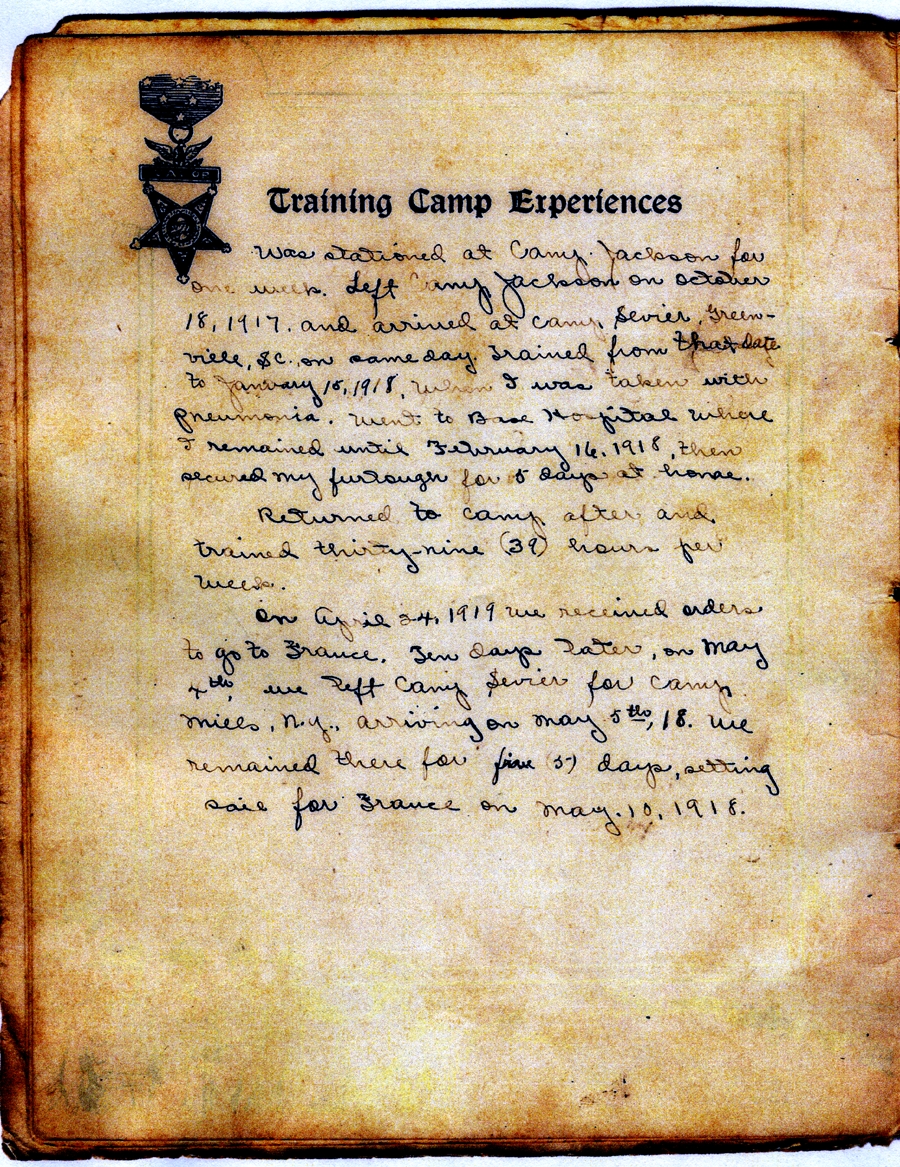 Training Camp Experiences
Was stationed at Camp Jackson for
one week. Left Camp Jackson on october
18, 1917, and arrived at camp Sevier, Green-
ville, S.C. on same day. Trained from that date
to January 15, 1918, when I was taken with
pneumonia. Went to Base Hospital where
I remained until February 16, 1918, then
secured my furlough for 5 days at home.
Returned to camp after and
trained thirty-nine (39) hours per
week.
On April 24, 1919 we received orders
to go to France. Ten days later, on May
4th, we left Camp Sevier for camp
Mills, N.Y., arriving on May 5th, 18. We
remained there for five (5) days, setting
sail for France on May. 10, 1918.